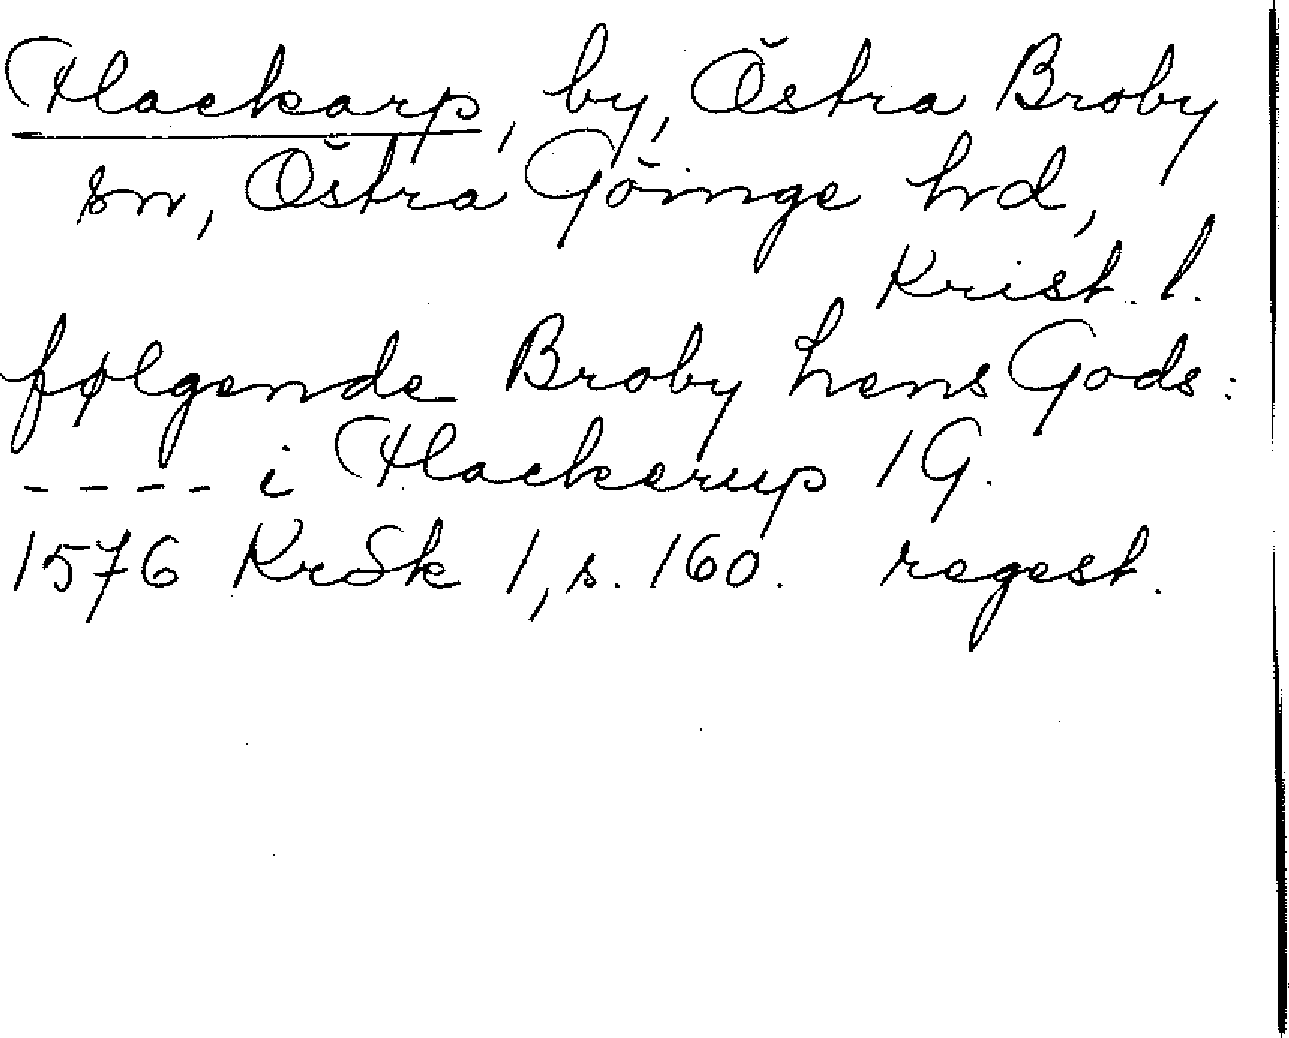 Hackarp, by, Östra Broby
sn, Östra Göinge hd,
Krist. l.
følgende Broby hens Gods:
- - - - i Hackerup 1 G.
1576 KrSk 1, s. 160. regest.